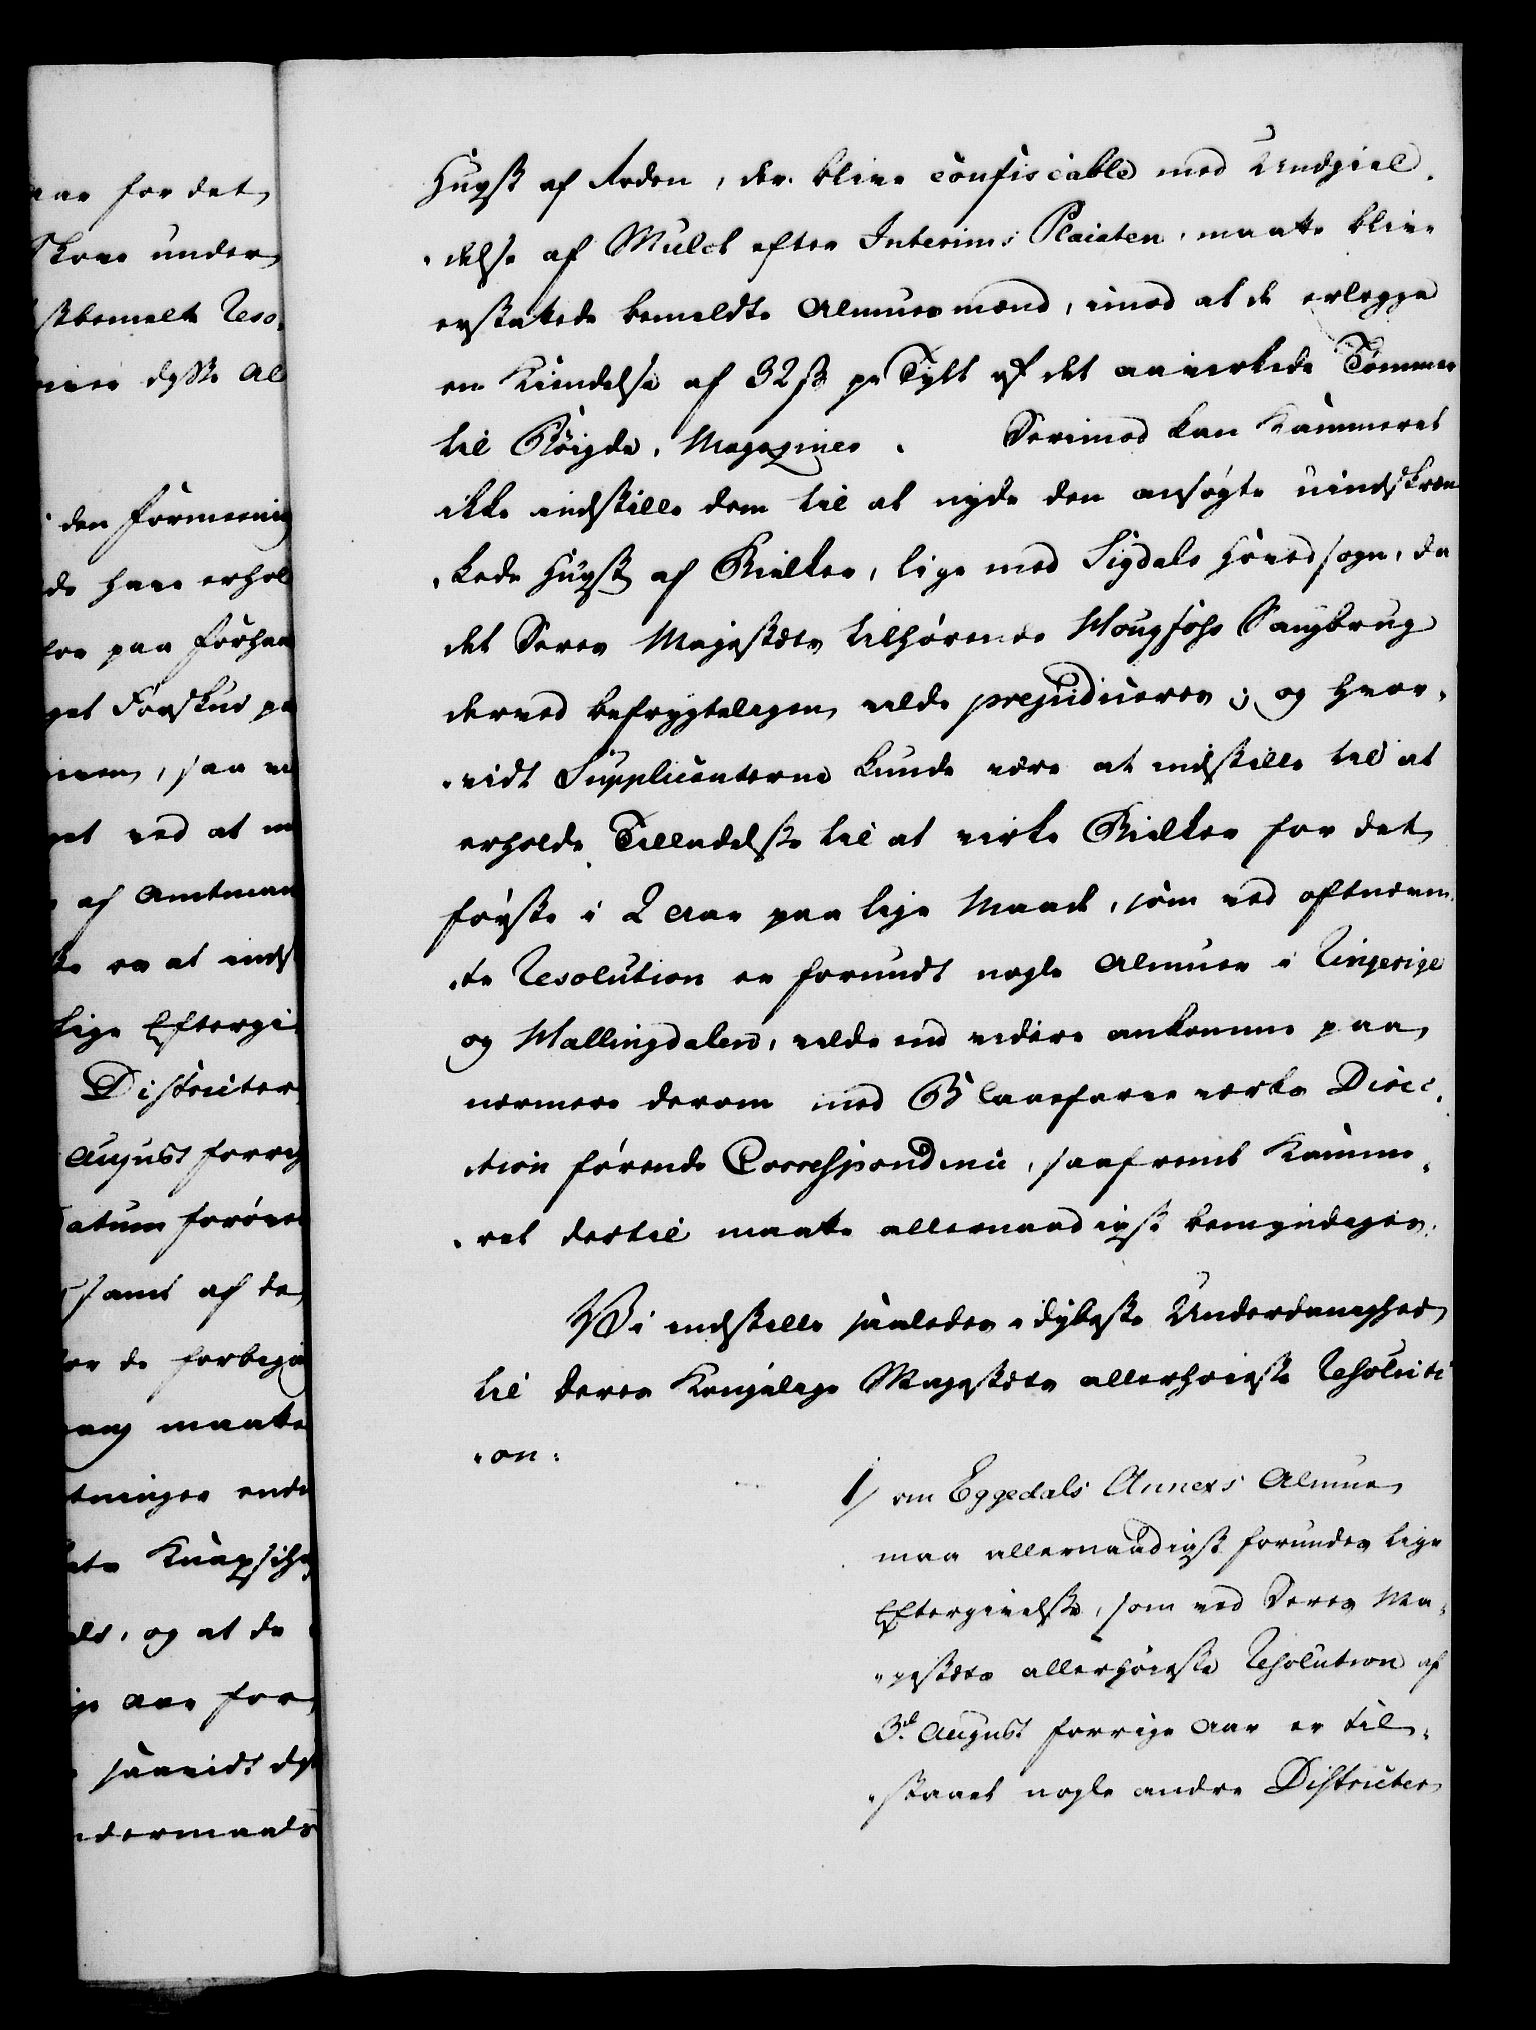 aar for det
Skove under
stbemelte Reso-
disse Al
den Formeening
de have erhol
paa Forhaan
get Forskud pa
, saa
ved at
af Amtman
er at inds
lige Eftergi-
Districter
August forrig
Datum forøve
samt af de
for de forbigaa
maatte
endn
og at de
ge Aar for
saavidt
ndermaals
Hugst af Roden, der blive confiscable med Undgiel-
-delse af Mulct efter Interims Placaten, maatte blive
erstattede bemeldte Almuesmænd, imod at de erlegge
en Kiendelse af 32 ß pr Tylt af det aavirkede Tømmer
til Bøigde-Magaziner. Derimod kan Kammeret
ikke indstille dem til at nyde den ansøgte uindskræn
-kede Hugst af Bielker, lige med Sigdals Hovedsogn, da
det Deres Majestæt tilhørende Hougfoss Saugbrug
derved befrygteligen vilde prejudiceres; og hvor-
-vidt Supplicanterne kunde være at indstille til at
erholde Tilladelse til at virke Bielker for det
første i 2 Aar paa lige Maade, som ved oftnævn-
-te Resolution er forundt nogle Almuer i Ringerige
og Hallingdalen, vilde end videre ankomme paa
nermere derom med Blaafarveverks Direc-
-tion førende Correspondence, saafremt Kamme-
-ret dertil maatte allernaadigst bemyndiges.
Vi indstille saaledes i dybeste Underdanighed
til Deres Kongelige Majestæts allerhøieste Resoluti
-on:
1/ om Eggedals Annexs Almue
maa allernaadigst forundes lige
Eftergivelse, som ved Deres Ma-
-jestæts allerhøieste Resolution af
3die August forrige Aar er til-
-staaet nogle andre Districter